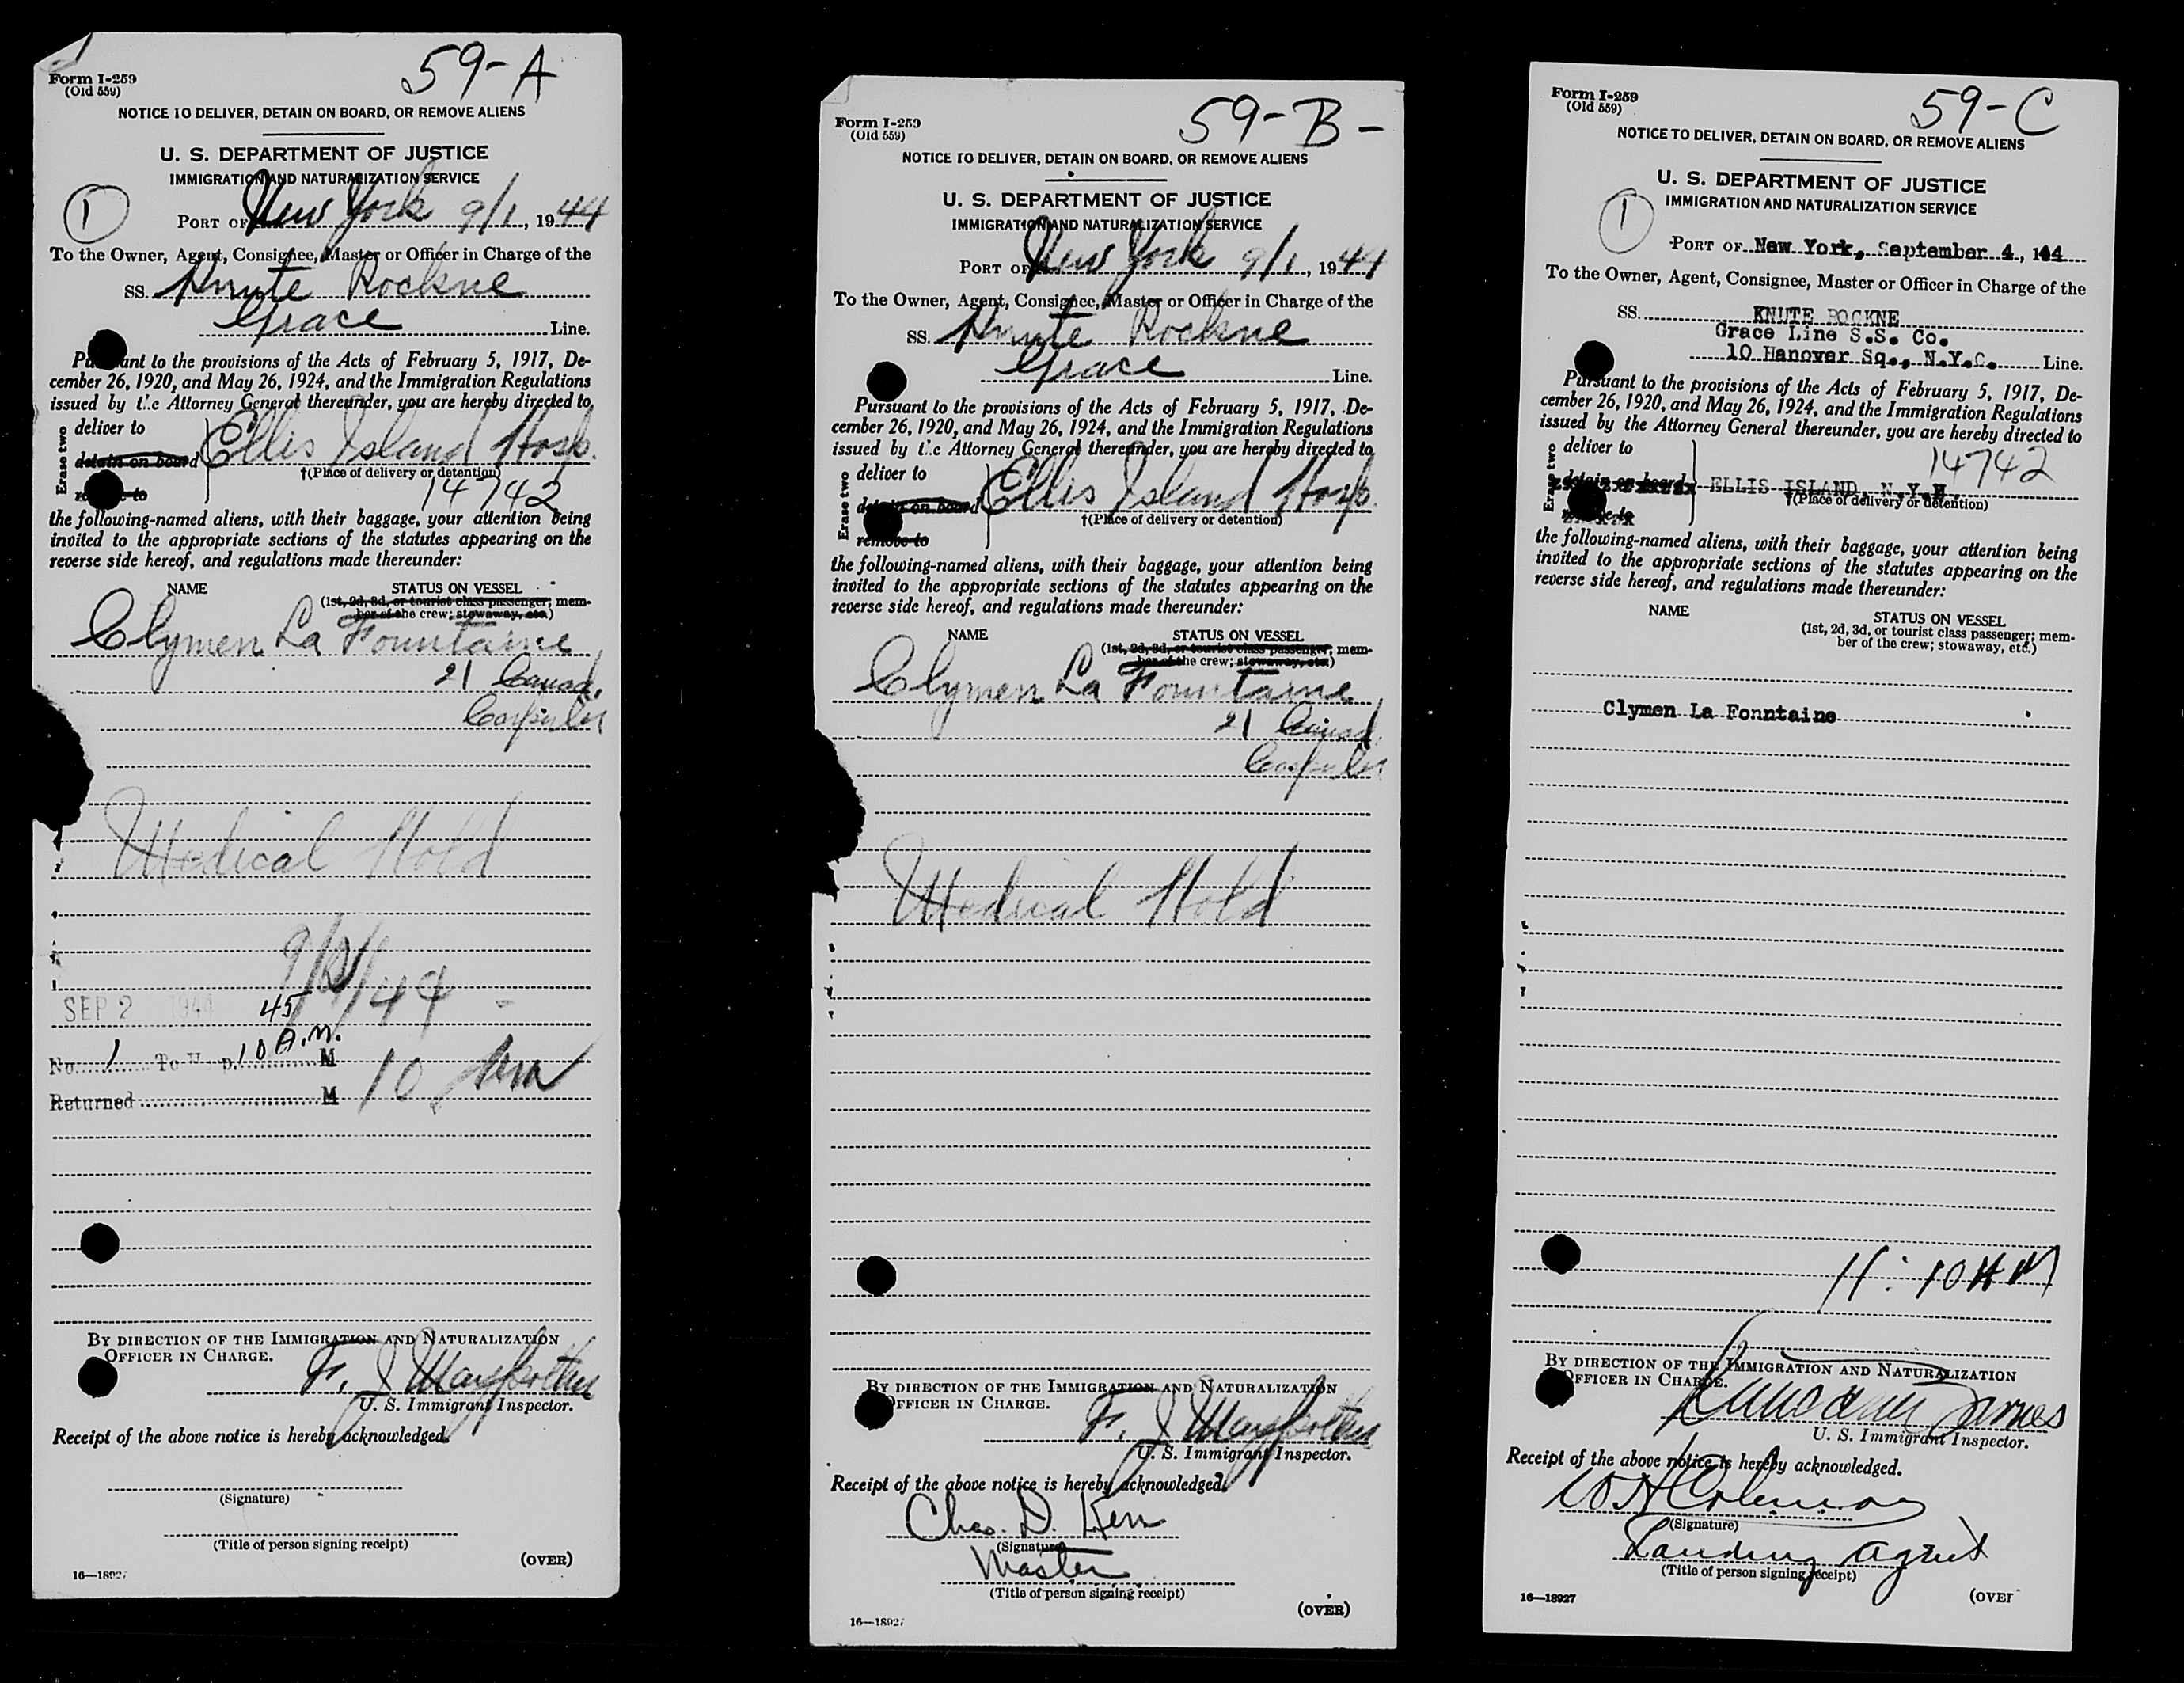 59-A
Form I-259
(Old 559)
NOTICE TO DELIVER, DETAIN ON BOARD, OR REMOVE ALIENS
U. S. DEPARTMENT OF JUSTICE
IMMIGRATION AND NATURALIZATION SERVICE
1
PORT OF New York 9/1, 1944
To the Owner, Agent, Consignee, Master or Officer in Charge of the
SS. Knute Rockne
Grace Line.
Pursuant to the provisions of the Acts of February 5, 1917, De-
cember 26, 1920, and May 26, 1924, and the Immigration Regulations
issued by the Attorney General thereunder, you are hereby directed to
Erase two
deliver to
detain on board Ellis Island Hosp.
†(Place of delivery or detention)
remove to
14742
the following-named aliens, with their baggage, your attention being
invited to the appropriate sections of the statutes appearing on the
reverse side hereof, and regulations made thereunder:
NAME STATUS ON VESSEL
(1st, 2d, 3d, or tourist class passenger; mem-
ber of the crew; stowaway, etc.)
Clymen La Fountaine
21 Canad.
Carpenter
Medical Hold
9/2/44
SEP 2 1944
45
No. 1 To 10 A.M. M
10 am
Returned M
BY DIRECTION OF THE IMMIGRATION AND NATURALIZATION
OFFICER IN CHARGE.
F. J.
U. S. Immigrant Inspector.
Receipt of the above notice is hereby acknowledged.
(Signature)
(Title of person signing receipt)
(OVER)
16—18927
59-B-
Form I-259
(Old 559)
NOTICE TO DELIVER, DETAIN ON BOARD, OR REMOVE ALIENS
U. S. DEPARTMENT OF JUSTICE
IMMIGRATION AND NATURALIZATION SERVICE
PORT OF New York 9/1, 1944
To the Owner, Agent, Consignee, Master or Officer in Charge of the
SS. Knute Rockne
Grace Line.
Pursuant to the provisions of the Acts of February 5, 1917, De-
cember 26, 1920, and May 26, 1924, and the Immigration Regulations
issued by the Attorney General thereunder, you are hereby directed to
Erase two
deliver to
detain on board Ellis Island Hosp.
†(Place of delivery or detention)
remove to
the following-named aliens, with their baggage, your attention being
invited to the appropriate sections of the statutes appearing on the
reverse side hereof, and regulations made thereunder:
NAME STATUS ON VESSEL
(1st, 2d, 3d, or tourist class passenger; mem-
ber of the crew; stowaway, etc.)
Clymen La Fountaine
21 Canad.
Carpenter
Medical Hold
BY DIRECTION OF THE IMMIGRATION AND NATURALIZATION
OFFICER IN CHARGE.
F. J.
U. S. Immigrant Inspector.
Receipt of the above notice is hereby acknowledged.
Chas. D. Kerr
(Signature)
Master
(Title of person signing receipt)
(OVER)
16—18927
59-C
Form I-259
(Old 559)
NOTICE TO DELIVER, DETAIN ON BOARD, OR REMOVE ALIENS
U. S. DEPARTMENT OF JUSTICE
IMMIGRATION AND NATURALIZATION SERVICE
1
PORT OF New York, September 4, 144
To the Owner, Agent, Consignee, Master or Officer in Charge of the
SS. KNUTE ROCKNE
Grace Line S.S. Co.
10 Hanover Sq., N.Y.C. Line.
Pursuant to the provisions of the Acts of February 5, 1917, De-
cember 26, 1920, and May 26, 1924, and the Immigration Regulations
issued by the Attorney General thereunder, you are hereby directed to
Erase two
deliver to
14742
detain on board ELLIS ISLAND, N.Y.H.
†(Place of delivery or detention)
remove to
the following-named aliens, with their baggage, your attention being
invited to the appropriate sections of the statutes appearing on the
reverse side hereof, and regulations made thereunder:
NAME STATUS ON VESSEL
(1st, 2d, 3d, or tourist class passenger; mem-
ber of the crew; stowaway, etc.)
Clymen La Fonntaine
11:10 AM
BY DIRECTION OF THE IMMIGRATION AND NATURALIZATION
OFFICER IN CHARGE.
U. S. Immigrant Inspector.
Receipt of the above notice is hereby acknowledged.
(Signature)
Landing Agent
(Title of person signing receipt)
(OVER
16—18927